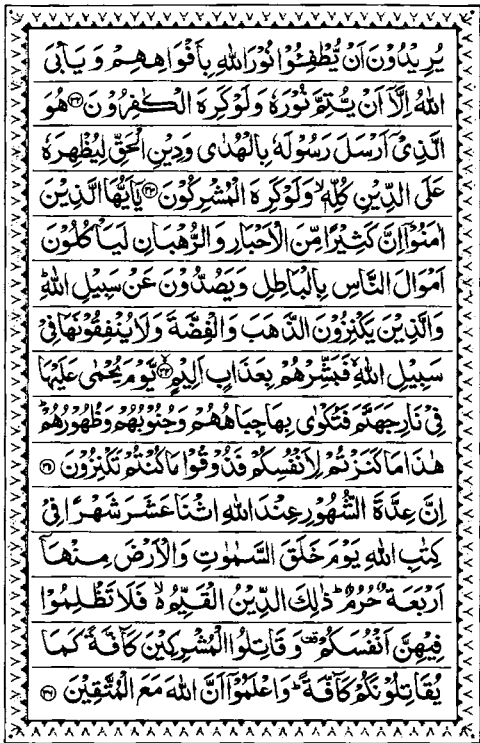 يُرِيْدُوْنَ اَنْ يُّطْفِـُٔوْا نُوْرَ اللّٰهِ بِاَفْوَاهِهِمْ وَ يَاْبَى
اللّٰهُ اِلَّاۤ اَنْ يُّتِمَّ نُوْرَهٗ وَ لَوْ كَرِهَ الْكٰفِرُوْنَ ۝۳۲ هُوَ
الَّذِیْۤ اَرْسَلَ رَسُوْلَهٗ بِالْهُدٰى وَ دِيْنِ الْحَقِّ لِيُظْهِرَهٗ
عَلَى الدِّيْنِ كُلِّهٖ ۙ وَ لَوْ كَرِهَ الْمُشْرِكُوْنَ ۝۳۳ يٰۤاَيُّهَا الَّذِيْنَ
اٰمَنُوْۤا اِنَّ كَثِيْرًا مِّنَ الْاَحْبَارِ وَ الرُّهْبَانِ لَيَاْكُلُوْنَ
اَمْوَالَ النَّاسِ بِالْبَاطِلِ وَ يَصُدُّوْنَ عَنْ سَبِيْلِ اللّٰهِ ؕ
وَ الَّذِيْنَ يَكْنِزُوْنَ الذَّهَبَ وَ الْفِضَّةَ وَ لَا يُنْفِقُوْنَهَا فِیْ
سَبِيْلِ اللّٰهِ ۙ فَبَشِّرْهُمْ بِعَذَابٍ اَلِيْمٍ ۝۳۴ يَّوْمَ يُحْمٰى عَلَيْهَا
فِیْ نَارِ جَهَنَّمَ فَتُكْوٰى بِهَا جِبَاهُهُمْ وَ جُنُوْبُهُمْ وَ ظُهُوْرُهُمْ ؕ
هٰذَا مَا كَنَزْتُمْ لِاَنْفُسِكُمْ فَذُوْقُوْا مَا كُنْتُمْ تَكْنِزُوْنَ ۝۳۵
اِنَّ عِدَّةَ الشُّهُوْرِ عِنْدَ اللّٰهِ اثْنَا عَشَرَ شَهْرًا فِیْ
كِتٰبِ اللّٰهِ يَوْمَ خَلَقَ السَّمٰوٰتِ وَ الْاَرْضَ مِنْهَاۤ
اَرْبَعَةٌ حُرُمٌ ؕ ذٰلِكَ الدِّيْنُ الْقَيِّمُ ۙ۬ فَلَا تَظْلِمُوْا
فِيْهِنَّ اَنْفُسَكُمْ ۫ وَ قَاتِلُوا الْمُشْرِكِيْنَ كَآفَّةً كَمَا
يُقَاتِلُوْنَكُمْ كَآفَّةً ؕ وَ اعْلَمُوْۤا اَنَّ اللّٰهَ مَعَ الْمُتَّقِيْنَ ۝۳۶